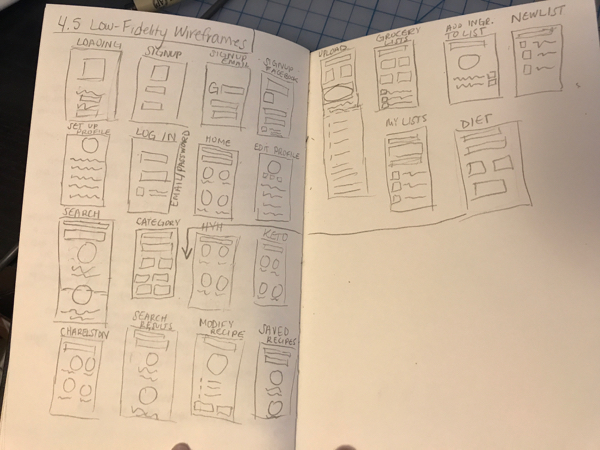 4.5 Low-Fidelity Wireframes
LOADING
SIGNUP
SIGNUP
EMAIL
SIGNUP
FACEBOOK
SET UP
PROFILE
LOG IN
EMAIL/PASSWORD
HOME
EDIT PROFILE
SEARCH
CATEGORY
HYH
KETO
CHARELSTON
SEARCH
RESULTS
MODIFY
RECIPE
SAVED
RECIPES
UPLOAD
GROCERY
LISTS
ADD INGR.
TO LIST
NEW LIST
MY LISTS
DIET